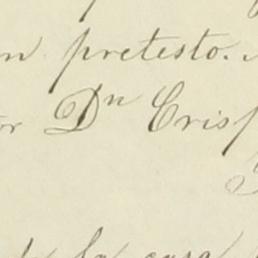 n pretesto.
or Dn Crisp
la casa